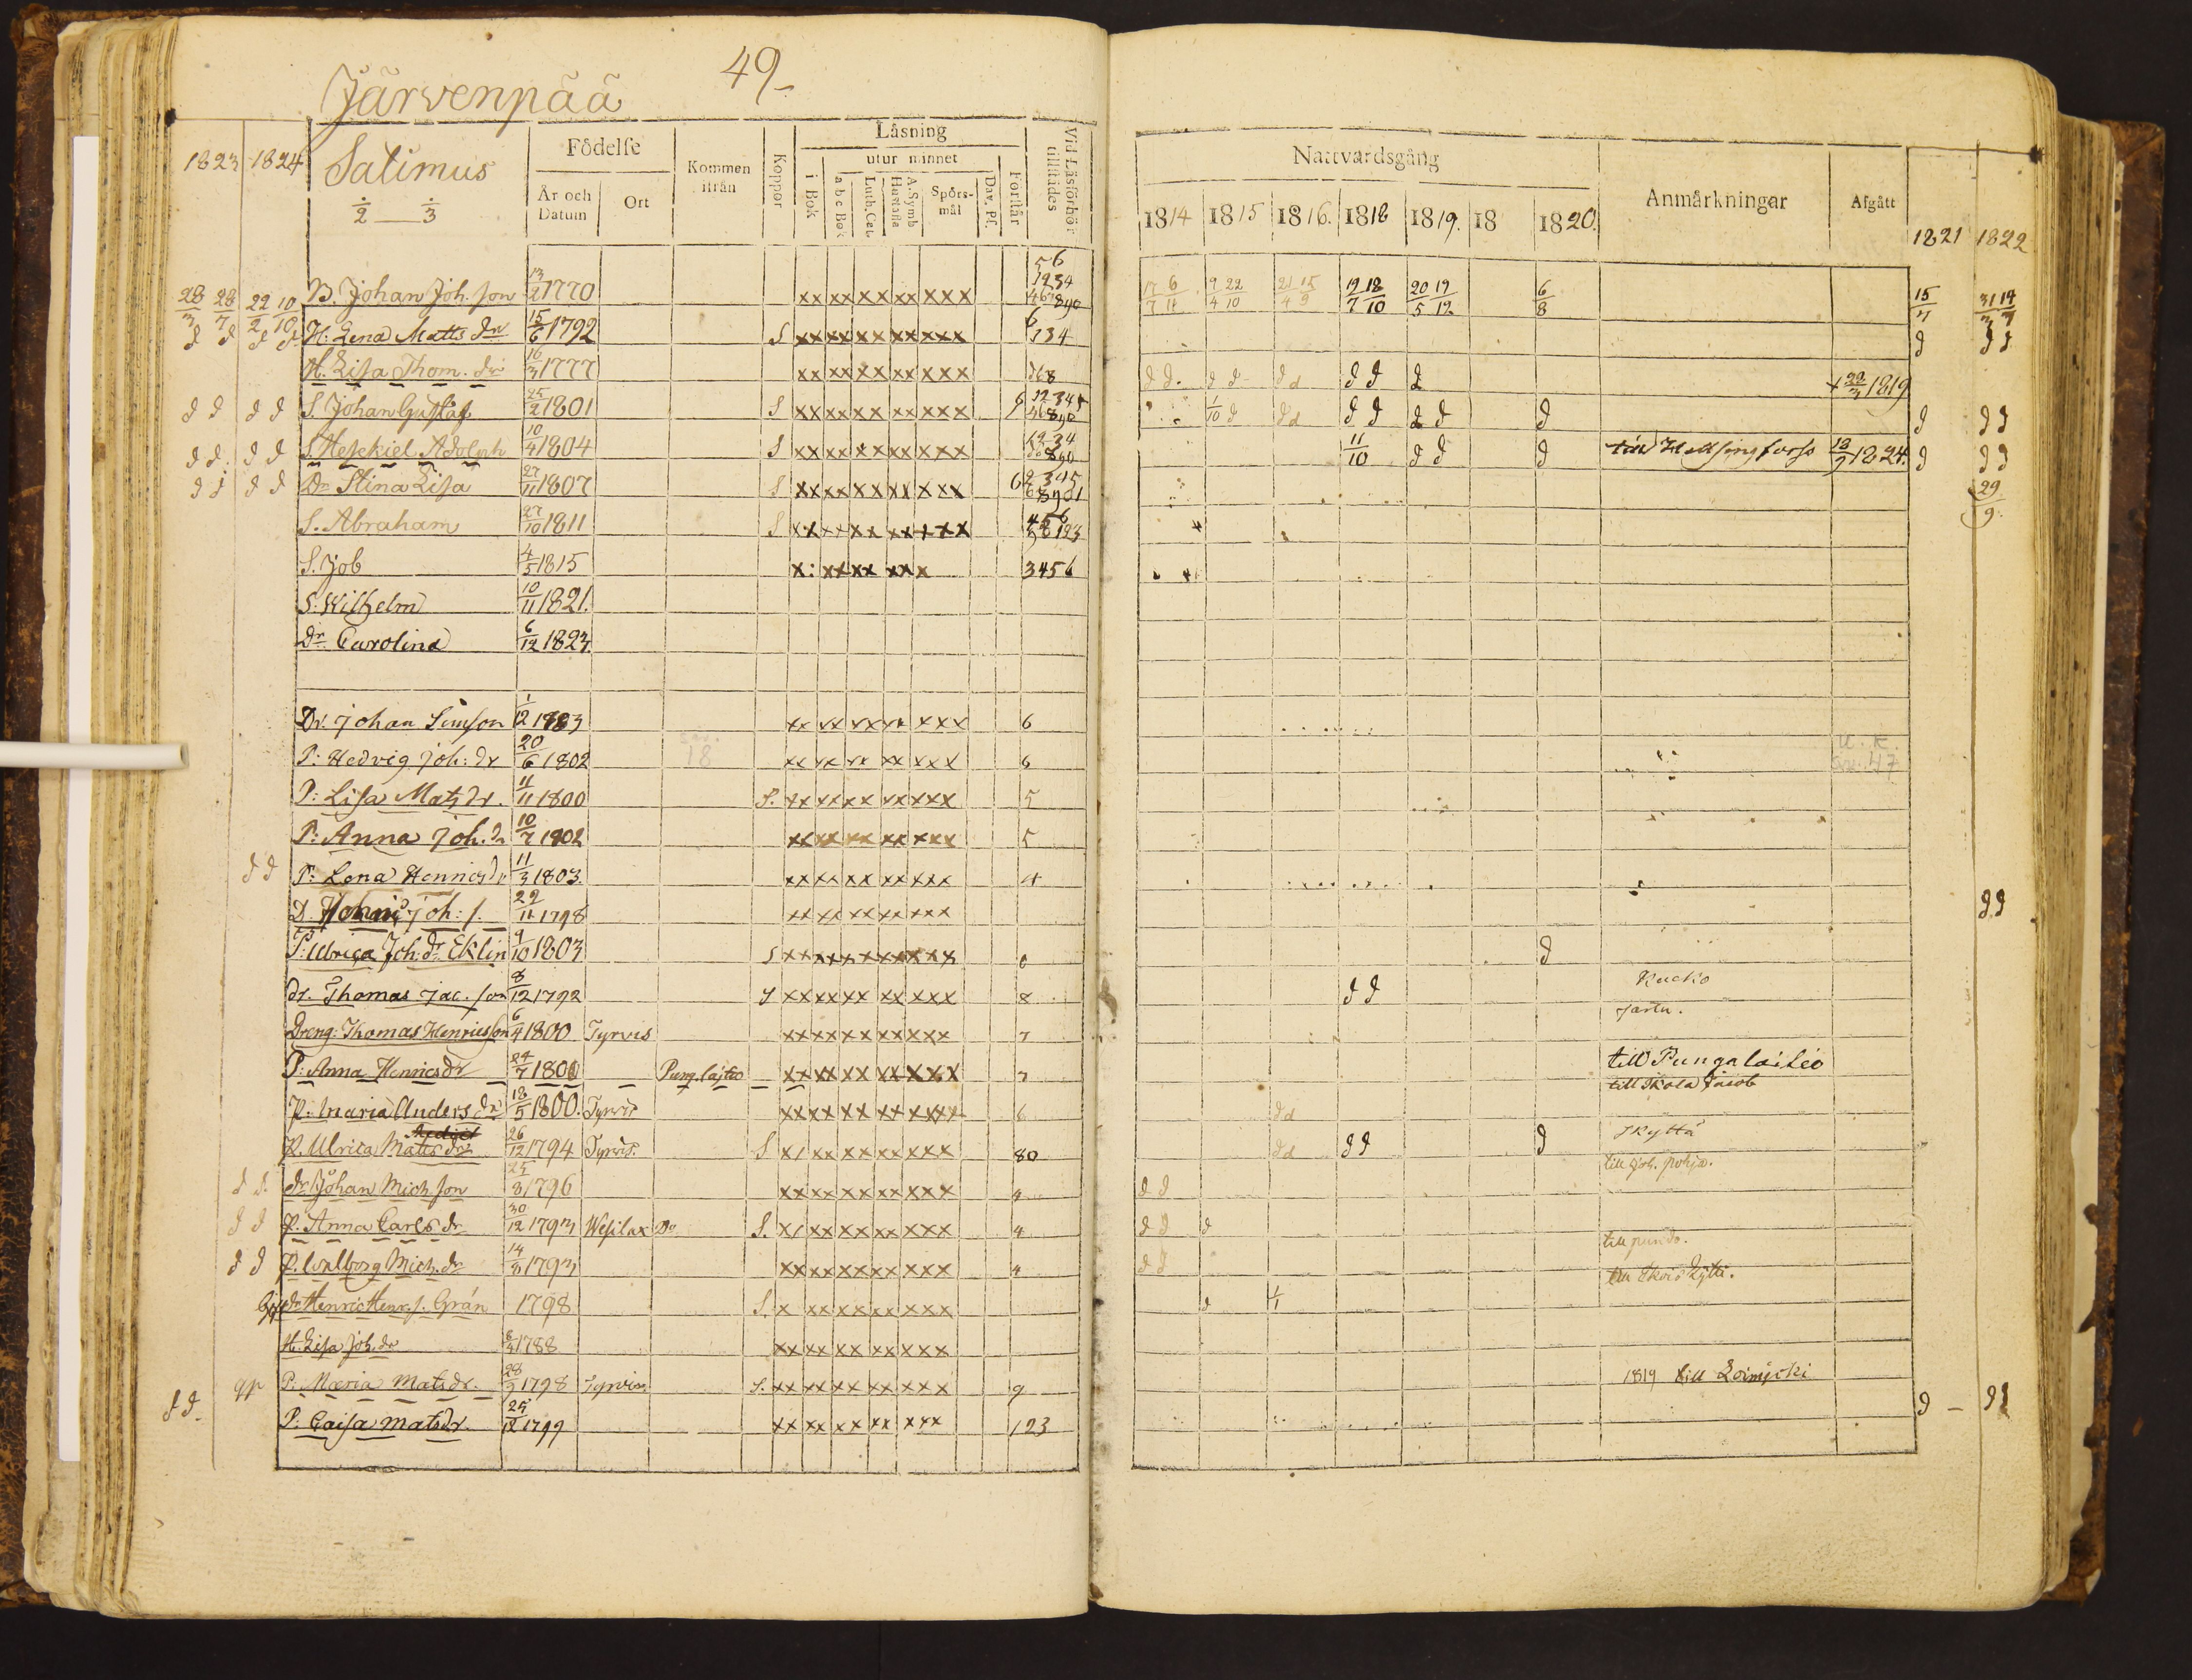 49
Järvenpää
1823 1824 Salimus Födelse Kommen ifrån Koppor Läsning Vid Läsförhör tillstädes
2 3 År och Datum Ort i Bok utur minnet a b c Bok Luth. Cat. A. Symb Hustafla Spörs-mål Dav. Ps. Förstår
Nattvardsgång Anmärkningar Afgått
1814 1815 1816. 1818 1819. 18 1820. 1821 1822
28/3 28/7 22/2 10/10 B. Johan Joh. son 13/2 1770 xx xx xx xx xxx 56 1234 467890 17/7 6/11 9/4 22/10 21/4 15/9 19/7 18/10 20/5 19/12 6/8 15/7 31/3 14/7
d d d d H. Lena Matts dr 15/6 1792 S xx xx xx xx xxx 6 134 d d d
H. Lisa Thom. dr 16/3 1777 xx xx xx xx xxx 768 d d. d d d d d d d + 20/3 1819
d d d d S. Johan Gustaf 25/2 1801 S xx xx xx xx xxx 1/10 d d d d d d d d d d d
d d d d S. Hesekiel Adolph 10/4 1804 S xx xx xx xx xxx 11/10 d d d till Helsingfors 13/9 1824. d d d
d d d d Dr Stina Lisa 27/11 1807 S xx xx xx xx xxx 29/9
S. Abraham 27/10 1811 S xx xx xx xx xxx
S. Job 4/5 1815 x: xx xx xx x 3456
S. Wilhelm 10/11 1821.
Dr Carolina 6/12 1823.
Dr. Johan Simson 1/12 1803 xx xx xx xx xxx 6
P: Hedvig Joh: dr 20/6 1802 18 xx xx xx xx xxx 6 47
P: Lisa Mats dr. 11/11 1800 S. xx xx xx xx xxx 5
P: Anna Joh. dr 10/7 1802 xx xx xx xx xxx 5
d d P: Lena Henricsdr 11/3 1803. xx xx xx xx xxx 4
D. Joh: s. 22/11 1798 xx xx xx xx xxx d d
P: Ulrica Joh: dr Eklin 9/10 1803 S xx xx xx xx xxx d
dr. Thomas Jac. son 8/12 1792 S xx xx xx xx xxx 8 d d Kucko
Dreng: Thomas Henricsson 6/4 1800 Tyrvis xx xx xx xx xxx 7 Jarlu.
P: Anna Henricsdr 24/7 1800 Pung.lajtio xx xx xx xx xxx 7 till Pungalaitio
P: Maria Anders dr 18/5 1800. Tyrvis xx xx xx xx xxx 6 d d till Skola Jacob
P. Ulrica Matts dr 26/12 1794 Tyrvis. S x/ xx xx xx xxx 80 d d d d d Skyttä
d d. dr Johan Mich. son 25/8 1796 xx xx xx xx xxx 4 d d till Joh. pohja.
d d P. Anna Carls dr 30/12 1793 Wesilax Do S. x/ xx xx xx xxx 4 d d d
d d P. Walborg Mich. dr 14/8 1793 xx xx xx xx xxx 4 d d till pundo.
dr Henric Henr. s. Grän 1798 S. x xx xx xx xxx d 1/1 till Skois Kytti.
H. Lisa Joh. dr 6/3 1788 xx xx xx xx xxx
P: Maria Mats dr. 28/9 1798 Tyrvis S. xx xx xx xx xxx 9 1819 till Loimjoki
d d. P: Caisa Mats dr. 25/12 1799 xx xx xx xx xxx 123 d – d d